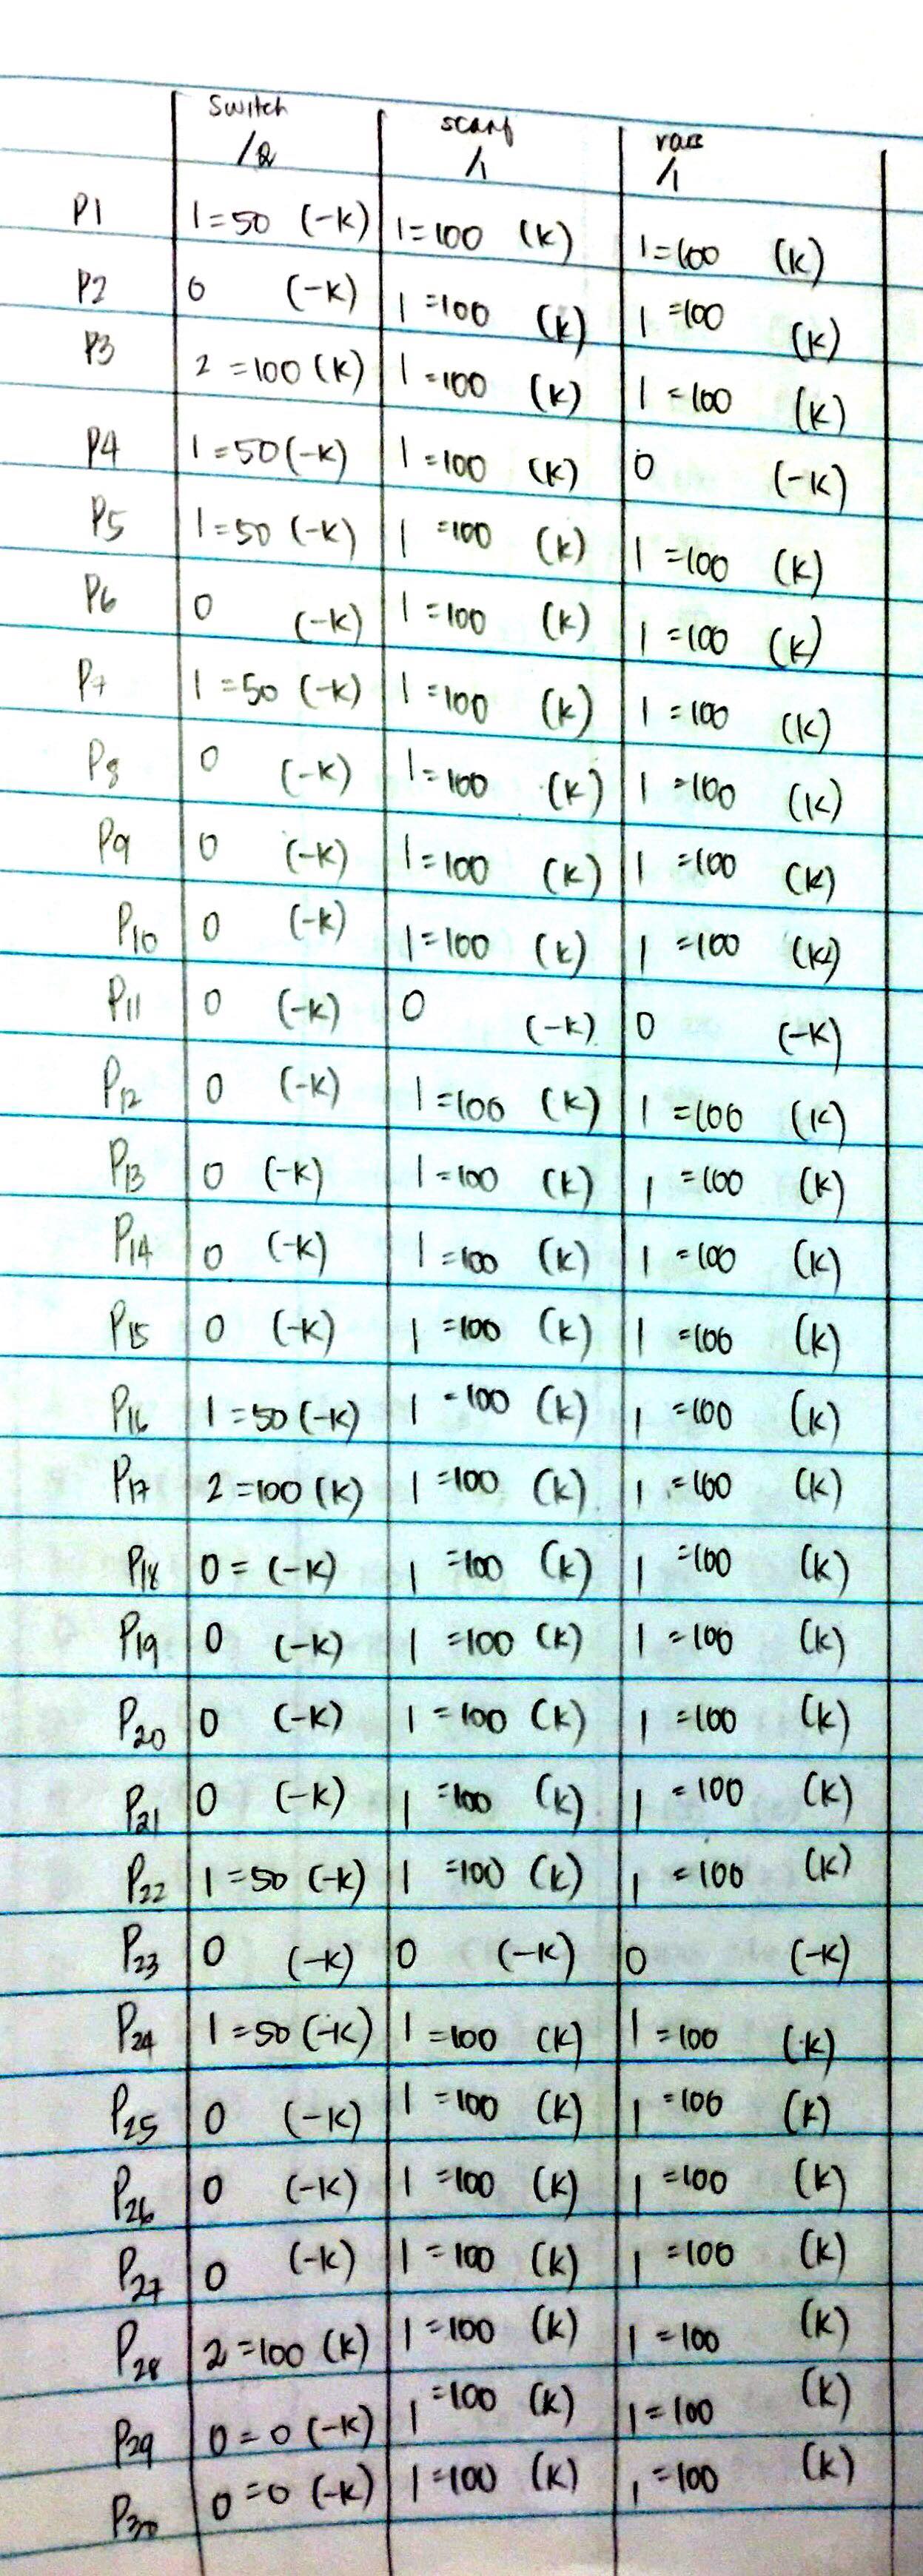 Switch scarf race
/2 /1 /1
P1 1=50 (-K) 1=100 (K) 1=100 (K)
P2 0 (-K) 1=100 (K) 1=100 (K)
P3 2=100 (K) 1=100 (K) 1=100 (K)
P4 1=50 (-K) 1=100 (K) 0 (-K)
P5 1=50 (-K) 1=100 (K) 1=100 (K)
P6 0 (-K) 1=100 (K) 1=100 (K)
P7 1=50 (-K) 1=100 (K) 1=100 (K)
P8 0 (-K) 1=100 (K) 1=100 (K)
P9 0 (-K) 1=100 (K) 1=100 (K)
P10 0 (-K) 1=100 (K) 1=100 (K)
P11 0 (-K) 0 (-K) 0 (-K)
P12 0 (-K) 1=100 (K) 1=100 (K)
P13 0 (-K) 1=100 (K) 1=100 (K)
P14 0 (-K) 1=100 (K) 1=100 (K)
P15 0 (-K) 1=100 (K) 1=100 (K)
P16 1=50 (-K) 1=100 (K) 1=100 (K)
P17 2=100 (K) 1=100 (K) 1=100 (K)
P18 0= (-K) 1=100 (K) 1=100 (K)
P19 0 (-K) 1=100 (K) 1=100 (K)
P20 0 (-K) 1=100 (K) 1=100 (K)
P21 0 (-K) 1=100 (K) 1=100 (K)
P22 1=50 (-K) 1=100 (K) 1=100 (K)
P23 0 (-K) 0 (-K) 0 (-K)
P24 1=50 (-K) 1=100 (K) 1=100 (K)
P25 0 (-K) 1=100 (K) 1=100 (K)
P26 0 (-K) 1=100 (K) 1=100 (K)
P27 0 (-K) 1=100 (K) 1=100 (K)
P28 2=100 (K) 1=100 (K) 1=100 (K)
P29 0=0 (-K) 1=100 (K) 1=100 (K)
P30 0=0 (-K) 1=100 (K) 1=100 (K)